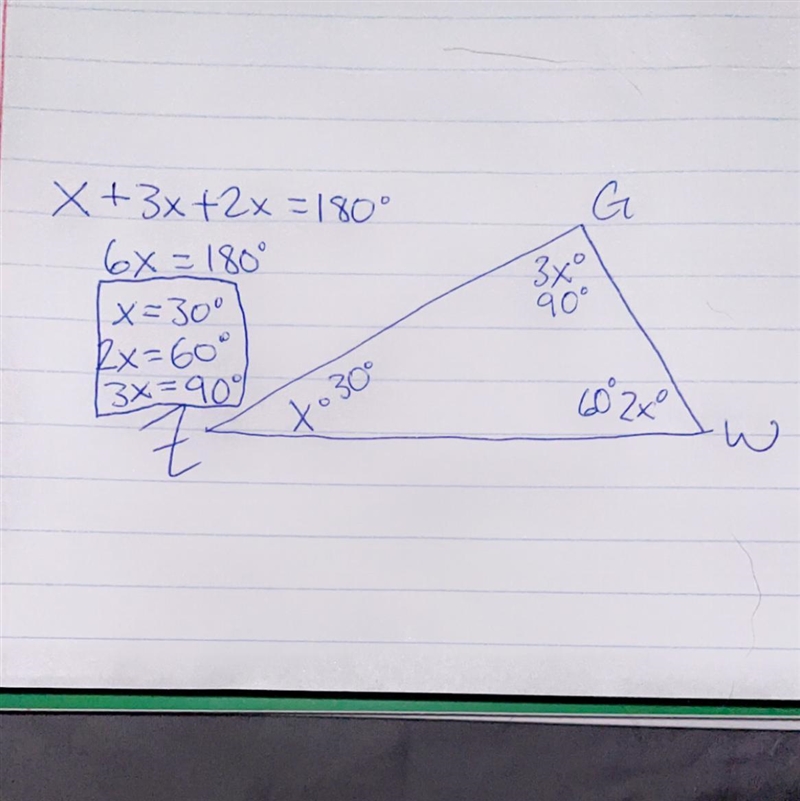 X + 3x + 2x = 180°
6x = 180°
x = 30°
2x = 60°
3x = 90°
G
3x°
90°
x° 30°
60° 2x°
Z
W